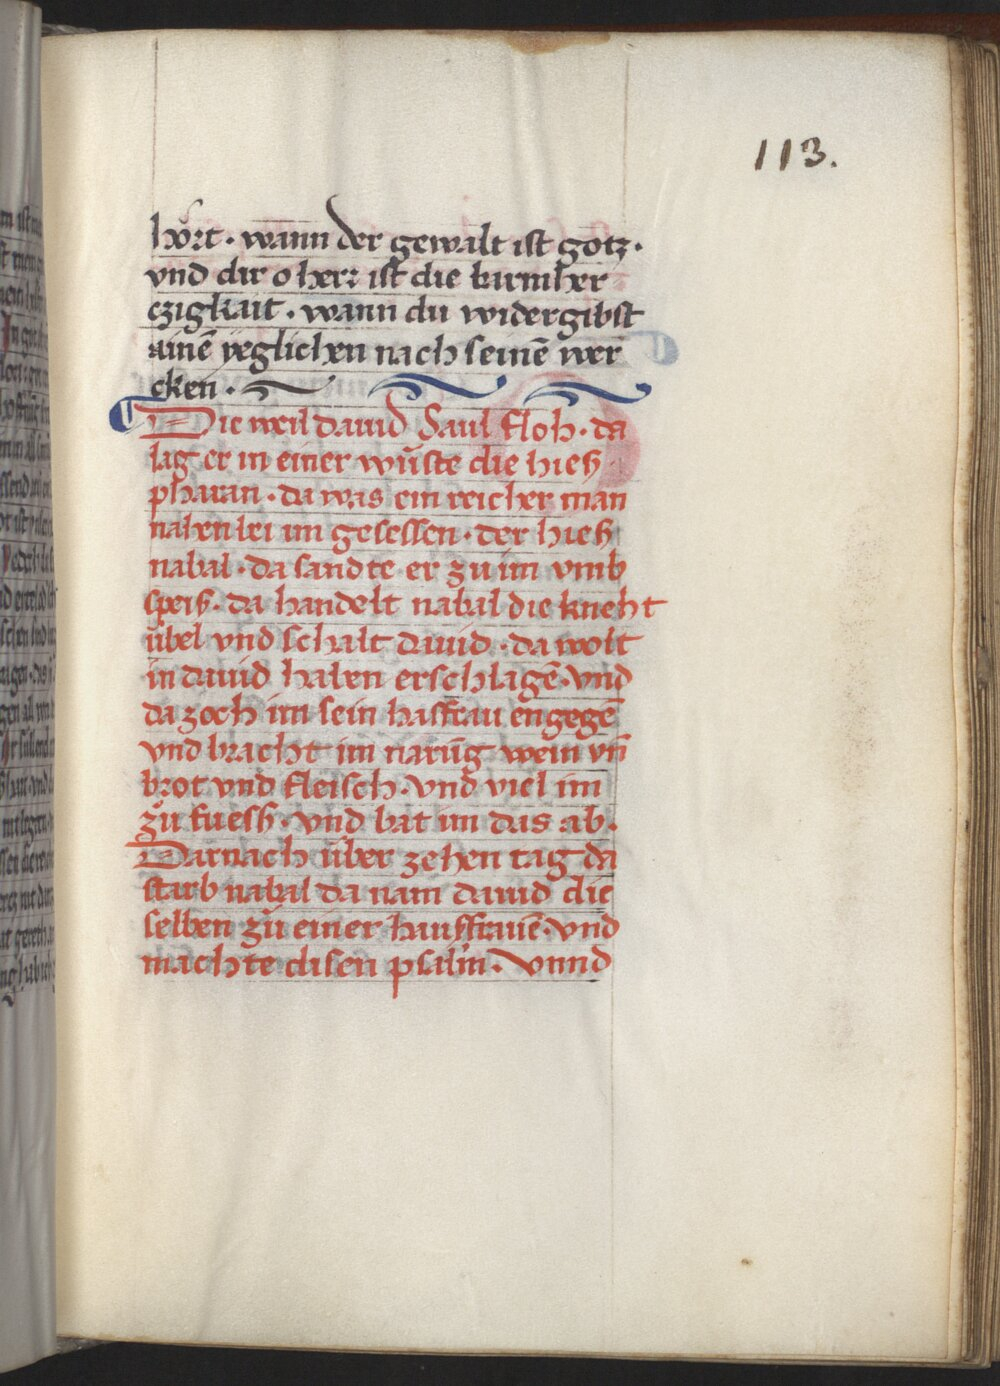 113.
hört · wann der gewalt ist gotz ·
vnd dir o herr ist die barmher
czigkait · wann du widergibst
ainē yeglichen nach seinē wer
cken ·
Die weil dauid Saul floh · da
lag er in einer wüste die hieß
pharan · da was ein reicher man
nahen bei im gesessen · der hieß
nabal · da sandte er zu im vmb
speiß · da handelt nabal die kneht
übel vnd schalt dauid · da wolt
in dauid haben erschlagē · vnd
da zoch im sein hasfrau engegē
vnd bracht im narūg wein vn̄
brot vnd fleisch · vnd viel im
zů fuesß · vnd bat im das ab ·
Darnach über zehen tag da
starb nabal da nam dauid die
selben zů einer hausfrauē · vnd
machte disen psalm · Vnnd